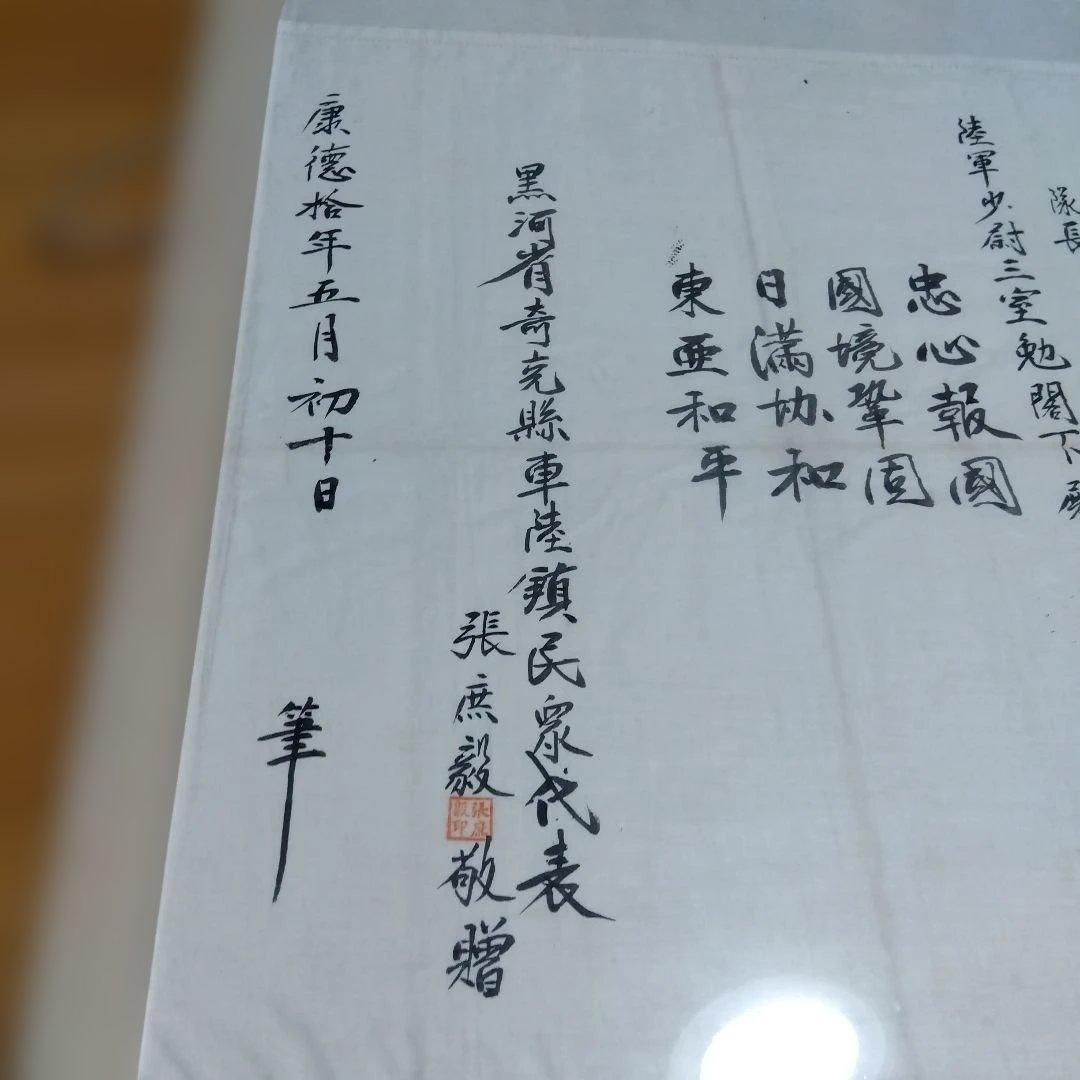 隊長
陸軍少尉三室勉閣下
忠心報國
國境鞏固
日滿協和
東亜和平
黒河省奇克縣車陸鎮民眾代表
張庶毅敬贈
張庶毅印
康德拾年五月初十日
筆